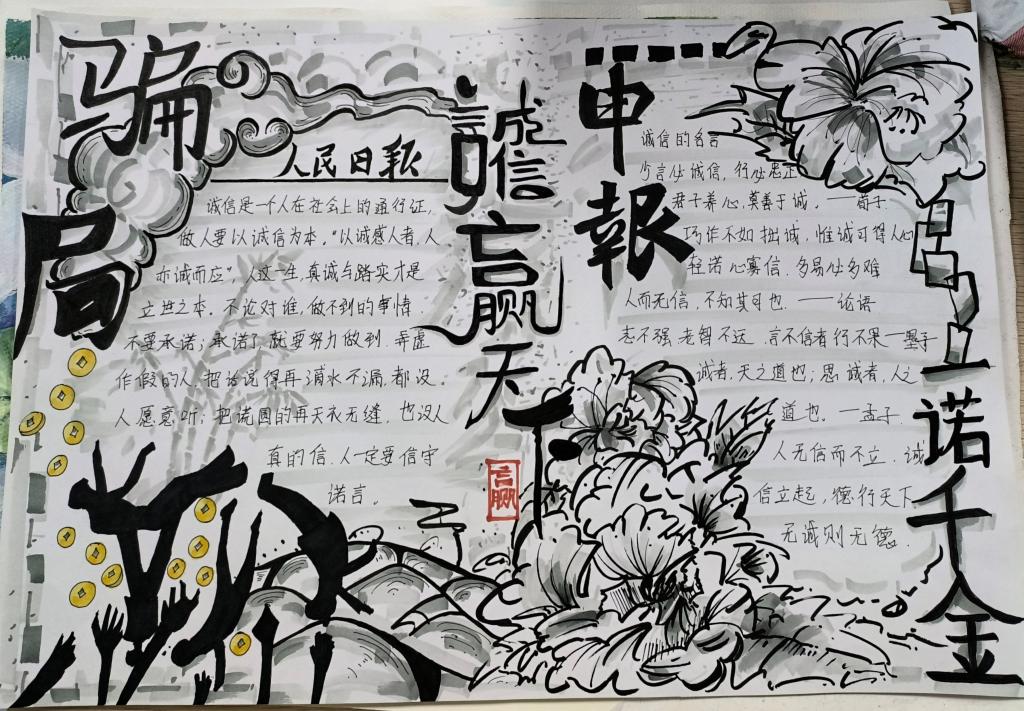 骗局
人民日报
诚信是一个人在社会上的通行证，
做人要以诚信为本。“以诚感人者，人
亦诚而应”，人这一生，真诚与踏实才是
立世之本。不论对谁，做不到的事情
不要承诺；承诺了就要努力做到。弄虚
作假的人，把话说得再滴水不漏，都没
人愿意听；把谎圆的再天衣无缝，也没人
真的信。人一定要信守
诺言。
誠信赢天下
言赢
申報
诚信的名言
少言必诚信，行必忠正
君子养心，莫善于诚。——荀子
巧诈不如拙诚，惟诚可得人心
轻诺必寡信，多易必多难
人而无信，不知其可也。——论语
志不强者智不达，言不信者行不果—墨子
诚者，天之道也；思诚者，人之
道也。—孟子
人无信而不立，诚
信立起，德行天下
无诚则无德。
一诺千金